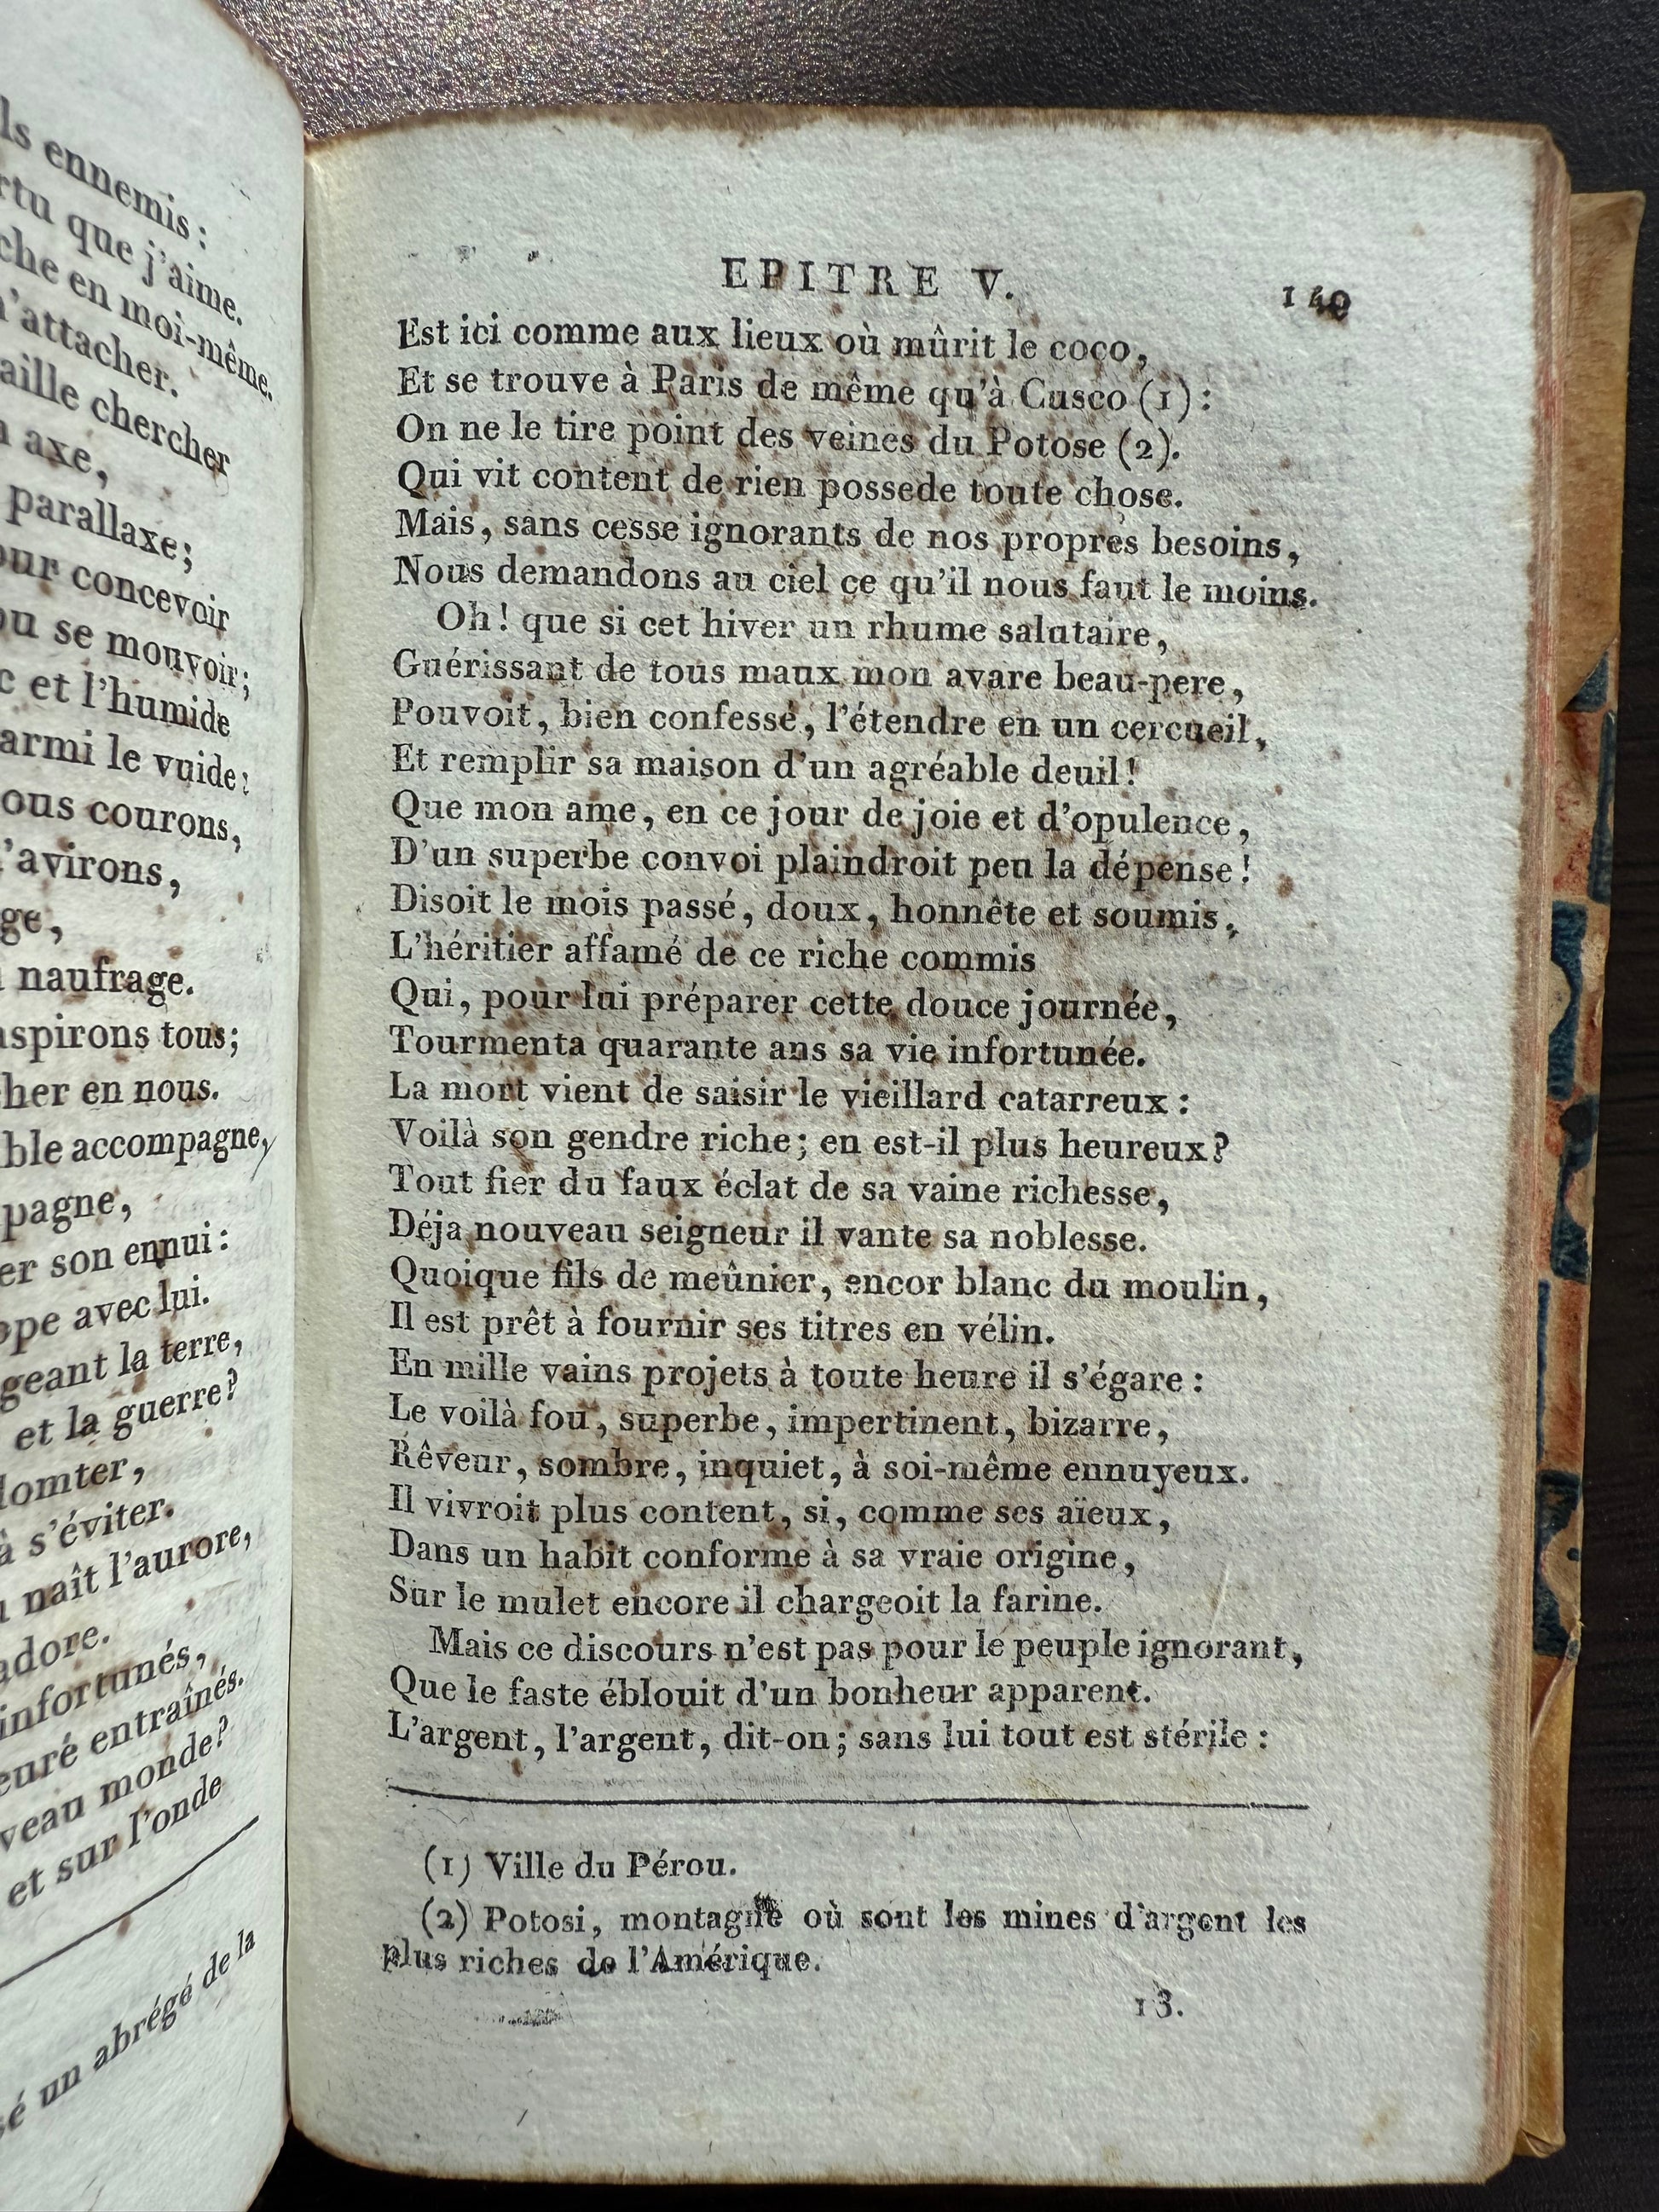 ls ennemis :
rtu que j'aime.
che en moi-même.
'attacher.
aille chercher
axe,
parallaxe;
our concevoir
ou se mouvoir;
c et l'humide
armi le vuide:
ous courons,
'avirons,
ge,
naufrage.
aspirons tous;
cher en nous.
ble accompagne,
pagne,
er son ennui :
ppe avec lui.
geant la terre,
et la guerre?
domter,
à s'éviter.
naît l'aurore,
adore.
infortunés,
euré entraînés.
veau monde?
et sur l'onde
sé un abrégé de la
EPITRE V.
Est ici comme aux lieux où mûrit le coco,
Et se trouve à Paris de même qu'à Cusco (1) :
On ne le tire point des veines du Potose (2).
Qui vit content de rien possede toute chose.
Mais, sans cesse ignorants de nos propres besoins,
Nous demandons au ciel ce qu'il nous faut le moins.
Oh! que si cet hiver un rhume salutaire,
Guérissant de tous maux mon avare beau-pere,
Pouvoit, bien confessé, l'étendre en un cercueil,
Et remplir sa maison d'un agréable deuil!
Que mon ame, en ce jour de joie et d'opulence,
D'un superbe convoi plaindroit peu la dépense!
Disoit le mois passé, doux, honnête et soumis,
L'héritier affamé de ce riche commis
Qui, pour lui préparer cette douce journée,
Tourmenta quarante ans sa vie infortunée.
La mort vient de saisir le vieillard catarreux :
Voilà son gendre riche; en est-il plus heureux?
Tout fier du faux éclat de sa vaine richesse,
Déja nouveau seigneur il vante sa noblesse.
Quoique fils de meûnier, encor blanc du moulin,
Il est prêt à fournir ses titres en vélin.
En mille vains projets à toute heure il s'égare :
Le voilà fou, superbe, impertinent, bizarre,
Rêveur, sombre, inquiet, à soi-même ennuyeux.
Il vivroit plus content, si, comme ses aïeux,
Dans un habit conforme à sa vraie origine,
Sur le mulet encore il chargeoit la farine.
Mais ce discours n'est pas pour le peuple ignorant,
Que le faste éblouit d'un bonheur apparent.
L'argent, l'argent, dit-on; sans lui tout est stérile :
(1) Ville du Pérou.
(2) Potosi, montagne où sont les mines d'argent les
plus riches de l'Amérique.
13.